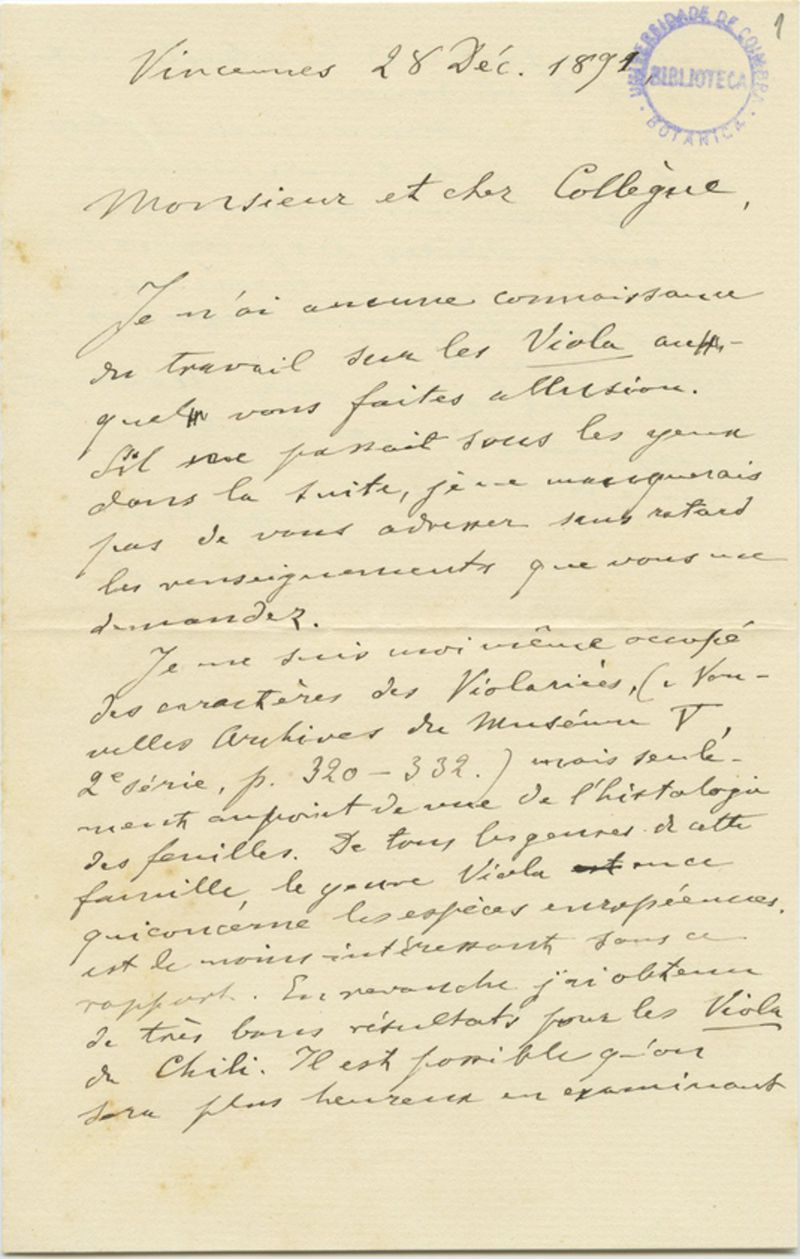 1
UNIVERSIDADE DE COIMBRA
BIBLIOTECA
BOTANICA
Vincennes 28 Déc. 1891,
Monsieur et cher Collègue,
Je n'ai aucune connaissance
du travail sur les Viola au-
quel vous faites allusion.
S'il me passait sous les yeux
dans la suite, je ne manquerais
pas de vous adresser sans retard
les renseignements que vous me
demandez.
Je me suis moi même occupé
des caractères des Violariées, (Nou-
velles Archives du Muséum V,
2e série, p. 320-332.) mais seule-
ment au point de vue de l'histologie
des feuilles. De tous les genres de cette
famille, le genre Viola en ce
qui concerne les espèces européennes,
est le moins intéressant sous ce
rapport. En revanche j'ai obtenu
de très bons résultats pour les Viola
du Chili. Il est possible qu'on
sera plus heureux en examinant